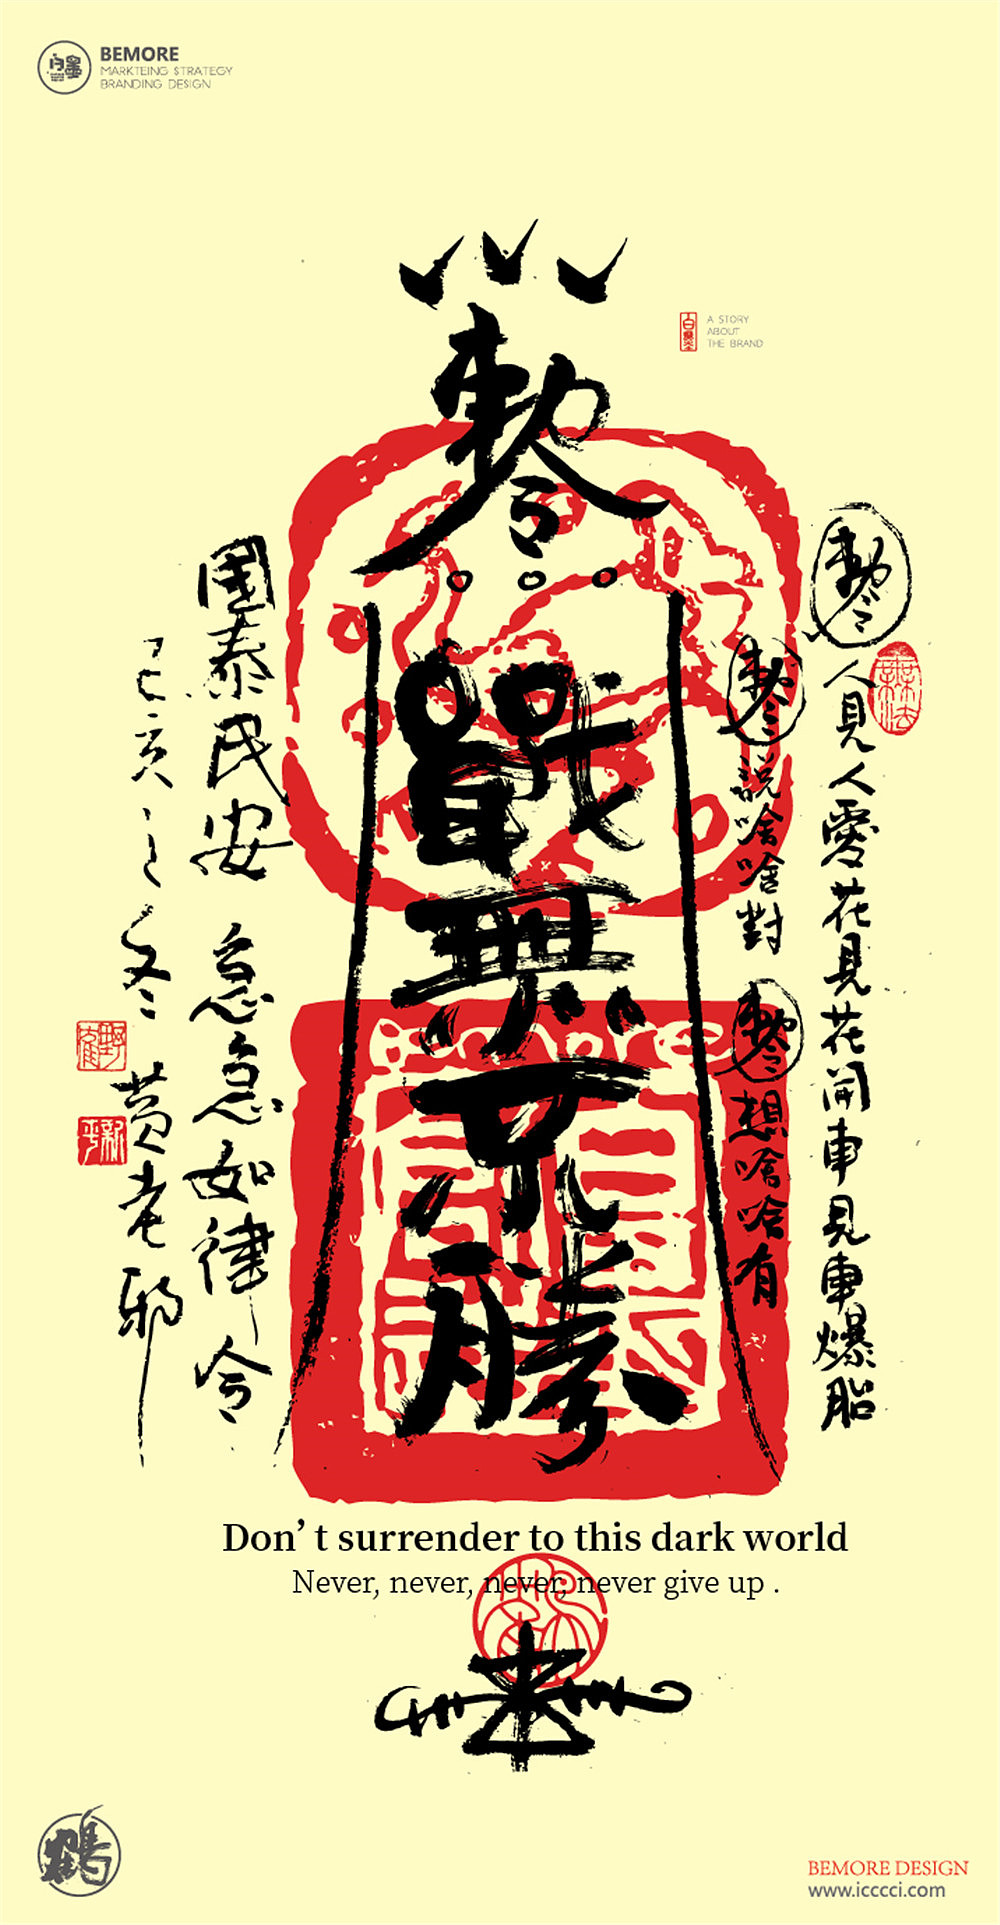 BEMORE
MARKTEING STRATEGY
BRANDING DESIGN
A STORY
ABOUT
THE BRAND
敕令
戰無不勝
敕令人見人愛花見花開車見車爆胎
敕令說啥啥對
敕令想啥啥有
國泰民安 急急如律令
己亥之冬 黄老邪
Bemore
Don’t surrender to this dark world
Never, never, never, never give up .
鶴
BEMORE DESIGN
www.icccci.com